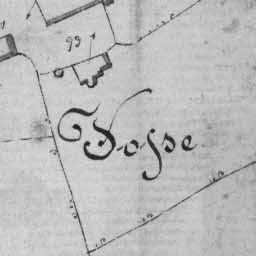 93
Fosse